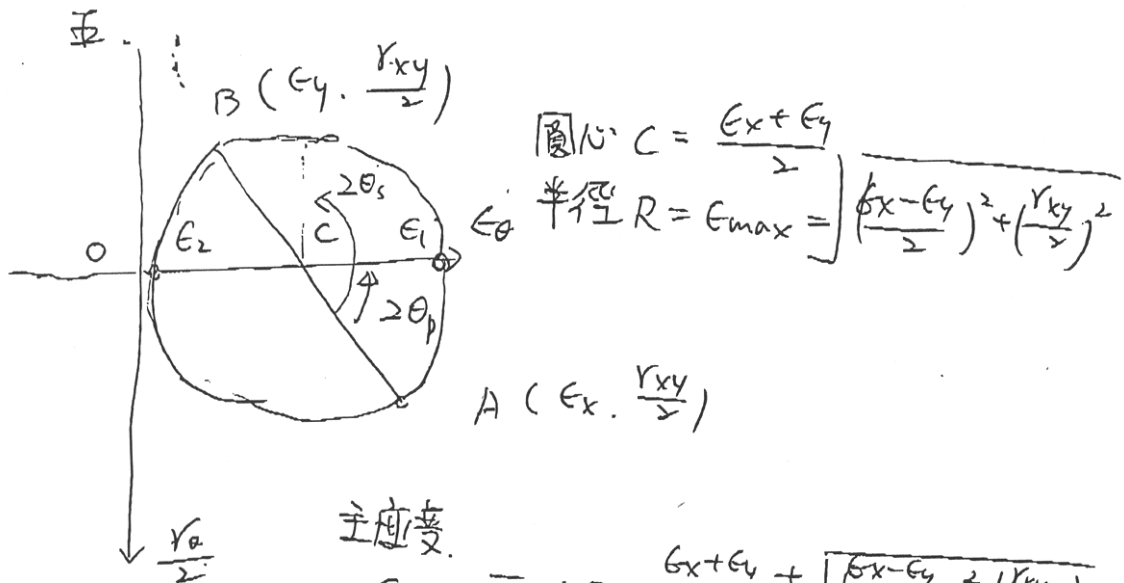 五.
B (ϵy. γxy/2)
圓心 C = (ϵx+ϵy)/2
半徑 R = ϵmax = √((ϵx-ϵy)/2)²+(γxy/2)²
2θs
O ϵ2 C ϵ1 ϵθ
2θp
A (ϵx. γxy/2)
γθ/2
主應變.
ϵx+ϵy + √ ϵx-ϵy 2 γxy